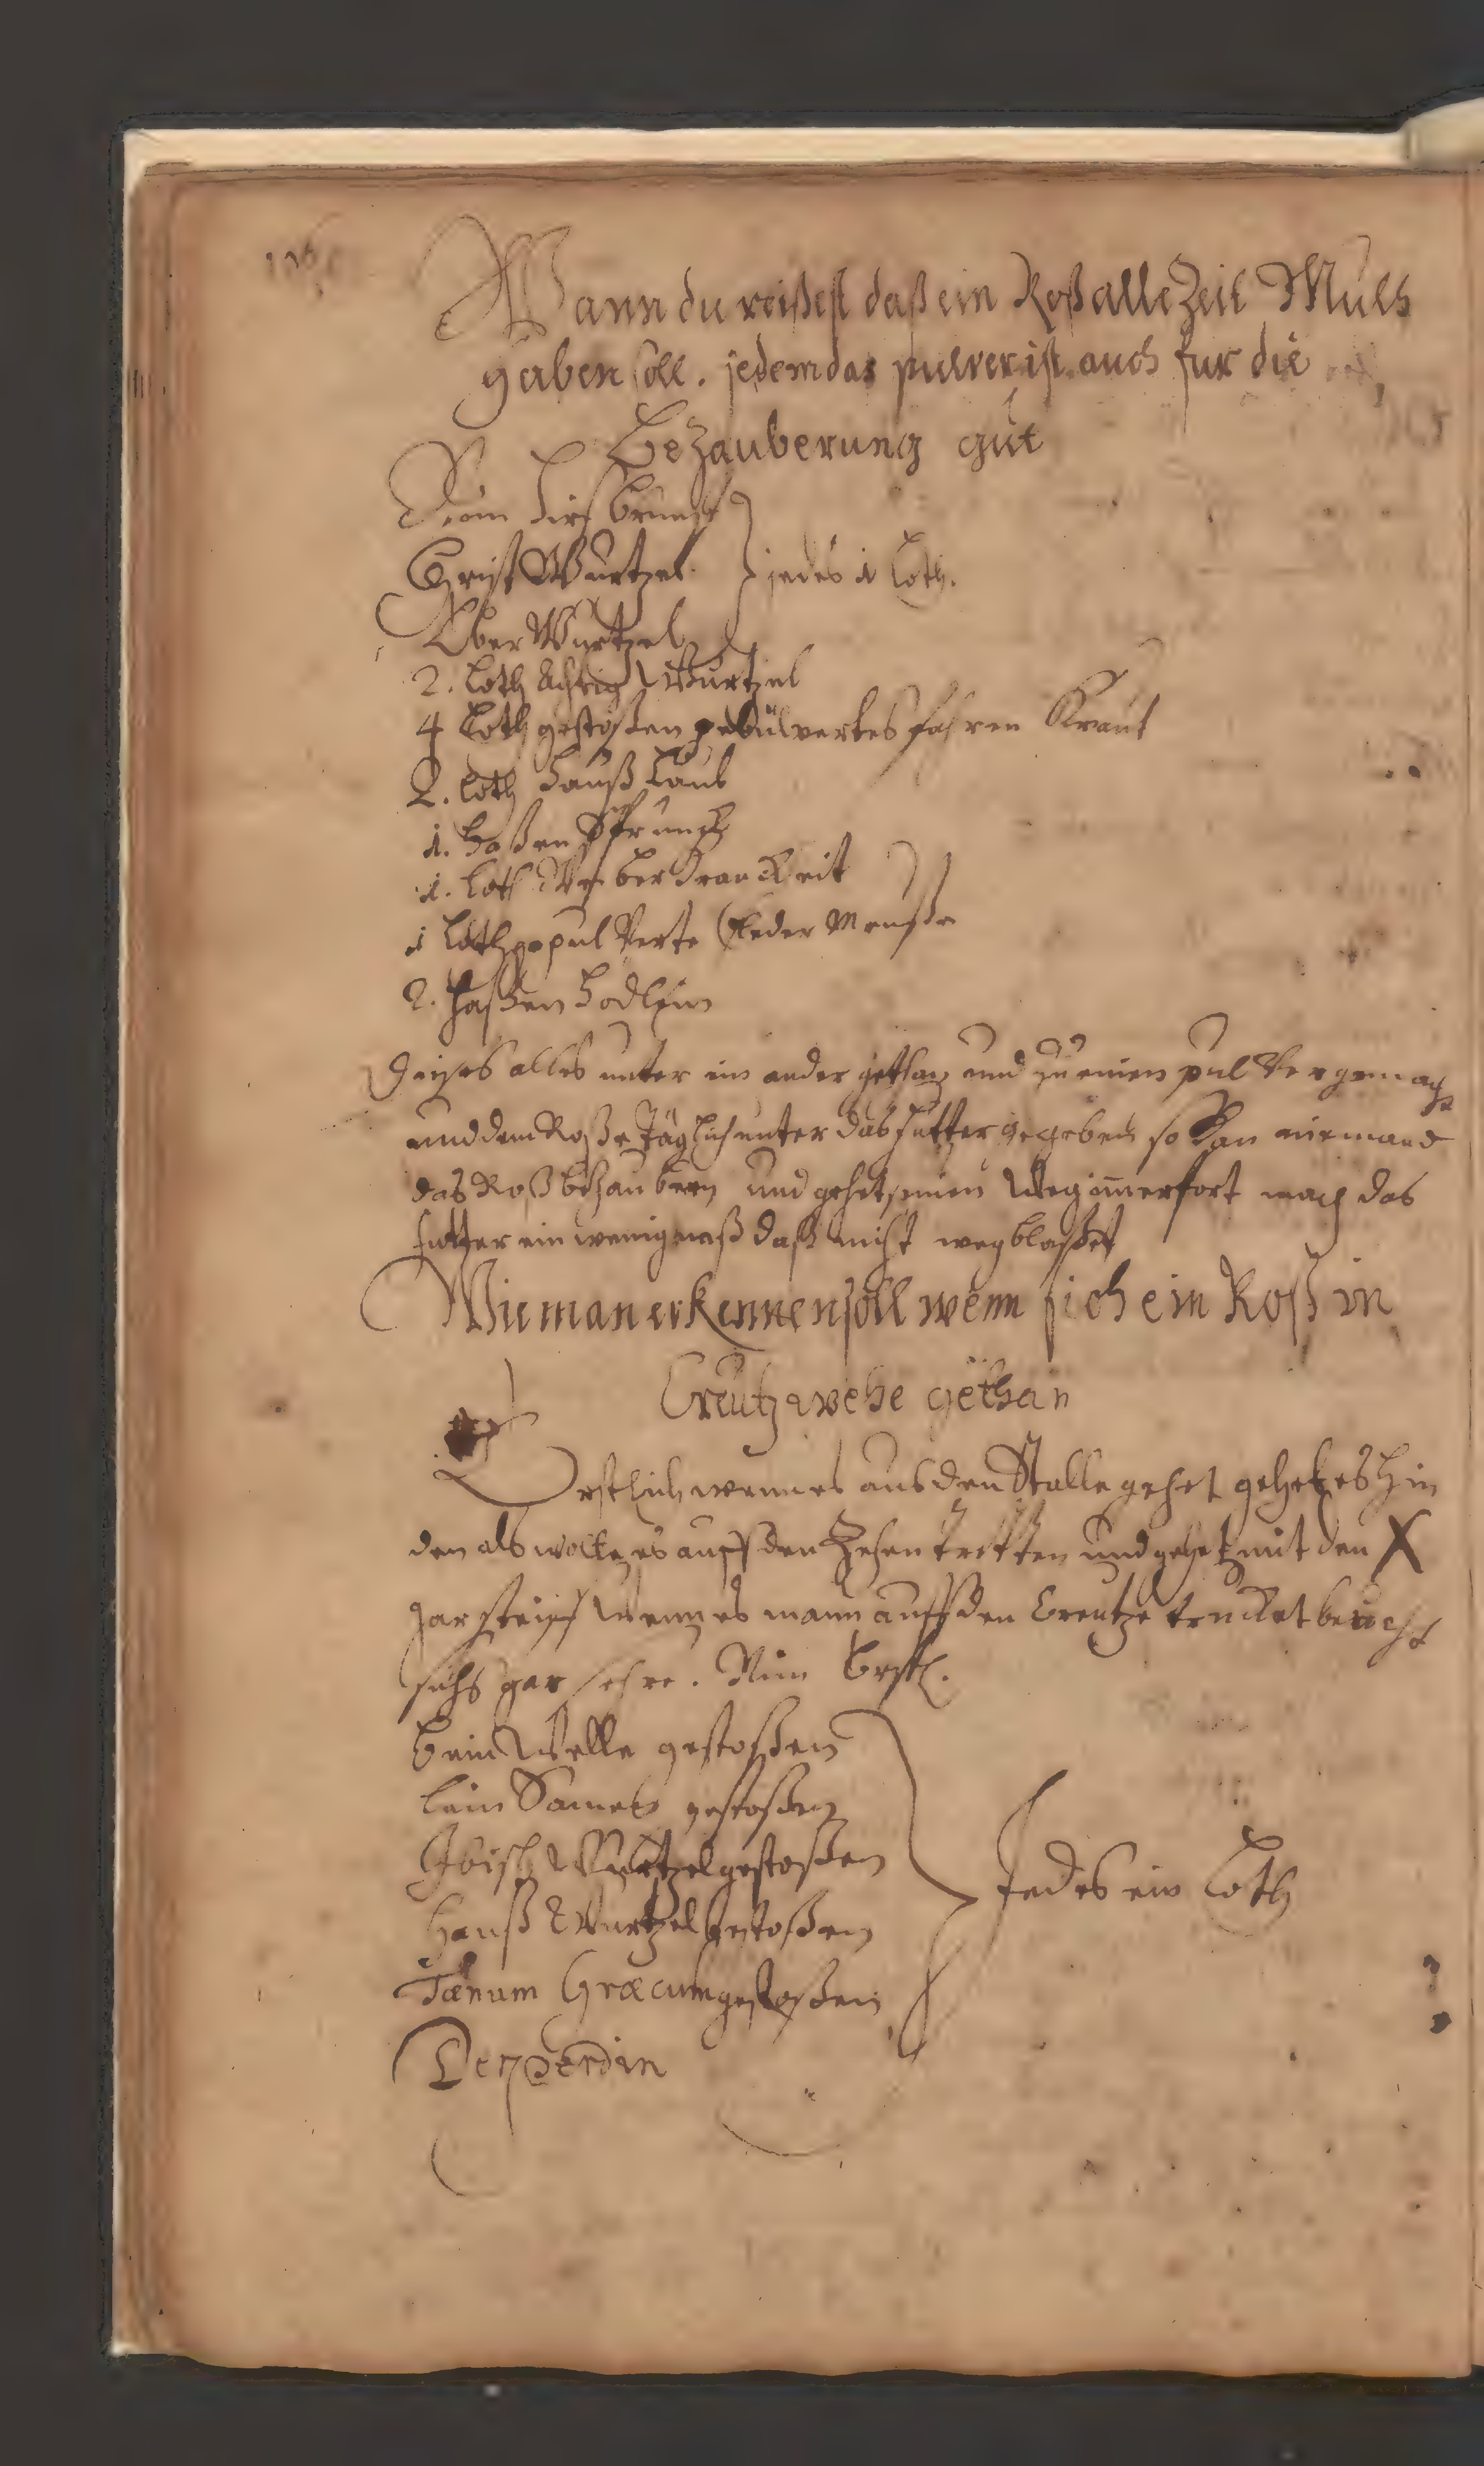 Wann du reißest daß ein Roß alle Zeit Muth
haben soll. jedem das pulver ist auch fur die
bezauberung gut
Nim Hirsch brunst
Christ Wurtzel } jedes 1 Loth.
Eber Wurtzel
2. Loth Wurtzel
4 Loth gestoßen gebülvertes fahren Kraut
2. Loth Hauß Laub
1. Haßen Sprung
1. Loth Krauckeit
1 Loth gepulverte fleder Meuße
2. Haßen Hodlein
Dieses alles unter ein ander gethan und zu einen pulver gemacht
und dem Roße Täglich unter das futter gegeben so kan niemand
das Roß bezaubern und gehet seinen Weg immerfort mach das
futter ein wenig naß daß nicht weg blaßet
Wie man erkennen soll wenn sich ein Roß in
Creutz wehe gethan
Erstlich wenn es aus den Stalle gehet gehet es hin
den als wolte es auff den Zehen tretten und gehet mit den X
gar steiff Wenn es mann auff den Creutze drucket beucht
sichs gar sehre. Nim Erstl.
bein Welle gestoßen
lein Samen gestoßen
Ibisch Wurtzel gestoßen
Hauß Wurtzel gestoßen } Jedes ein Loth
Fænum Græcum gestoßen